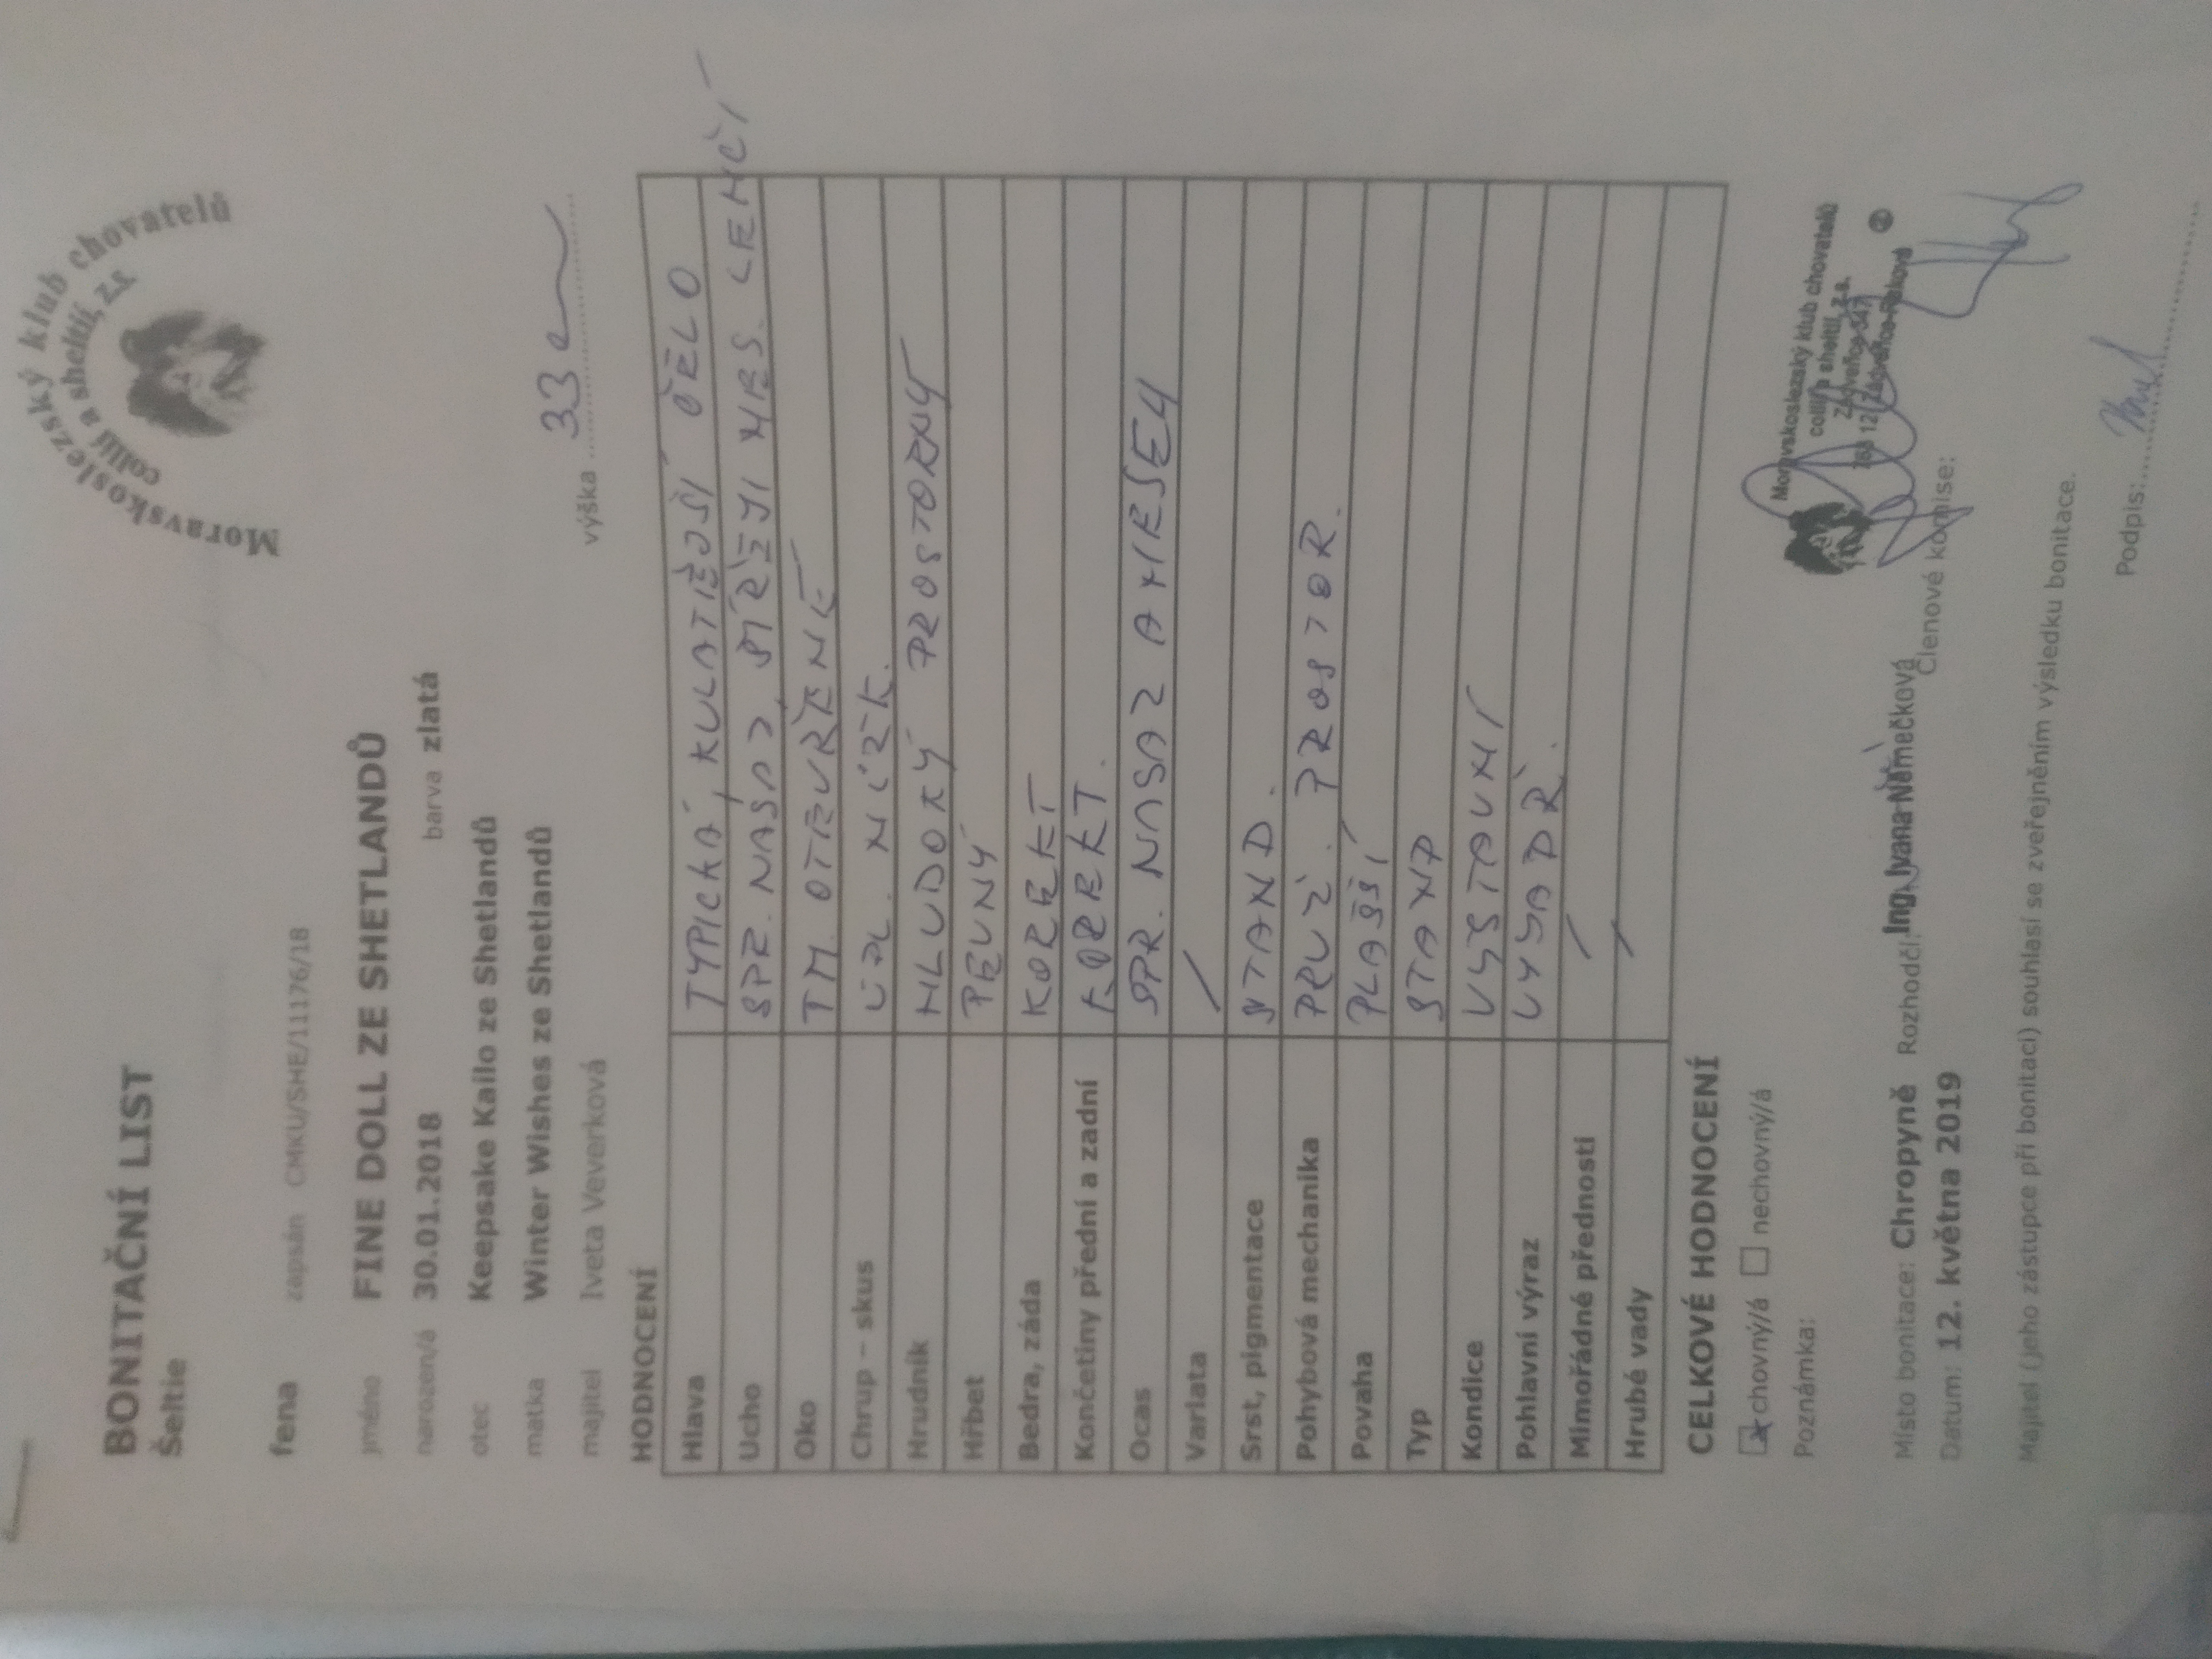 Moravskoslezský klub chovatelů
collií a sheltií, z.s.
BONITAČNÍ LIST
Šeltie
fena zapsán CMKU/SHE/11176/18
jméno FINE DOLL ZE SHETLANDŮ
narozen/á 30.01.2018 barva zlatá
otec Keepsake Kailo ze Shetlandů
matka Winter Wishes ze Shetlandů
majitel Iveta Veverková výška 33
HODNOCENÍ
Hlava TYPICKÁ, KULATĚJŠÍ ČELO
Ucho SPR. NASAZ, LEHČÍ
Oko TM. OTEVŘENÉ
Chrup – skus ÚPL. NŮŽK.
Hrudník HLUBOKÝ PROSTORNÝ
Hřbet PEVNÝ
Bedra, záda KOREKT
Končetiny přední a zadní KOREKT.
Ocas SPR. NASAZ A NESEN
Varlata /
Srst, pigmentace STAND.
Pohybová mechanika PRUŽ. PROSTOR.
Povaha PLAŠŠÍ
Typ STAND
Kondice VÝSTAVNÍ
Pohlavní výraz VYJÁDŘ.
Mimořádné přednosti /
Hrubé vady /
CELKOVÉ HODNOCENÍ
chovný/á nechovný/á
Poznámka:
Moravskoslezský klub chovatelů
collií a sheltií, z.s.
Zástavba 547
768 12 Záříčí
Místo bonitace: Chropyně Rozhodčí: Ing. Ivana Němečková Členové komise:
Datum: 12. května 2019
Majitel (jeho zástupce při bonitaci) souhlasí se zveřejněním výsledku bonitace.
Podpis: